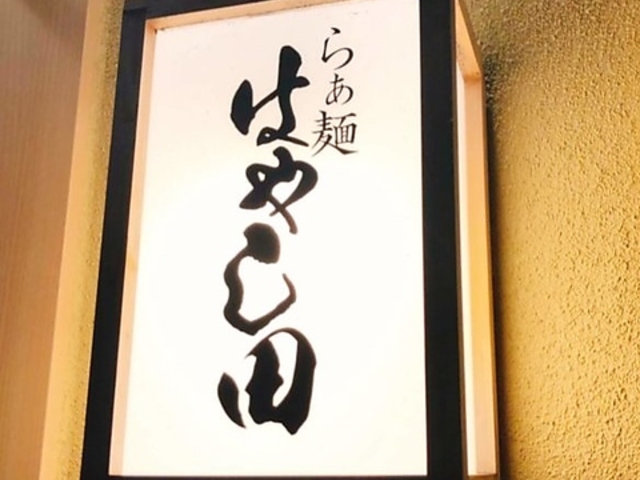 らぁ麺
はやし田